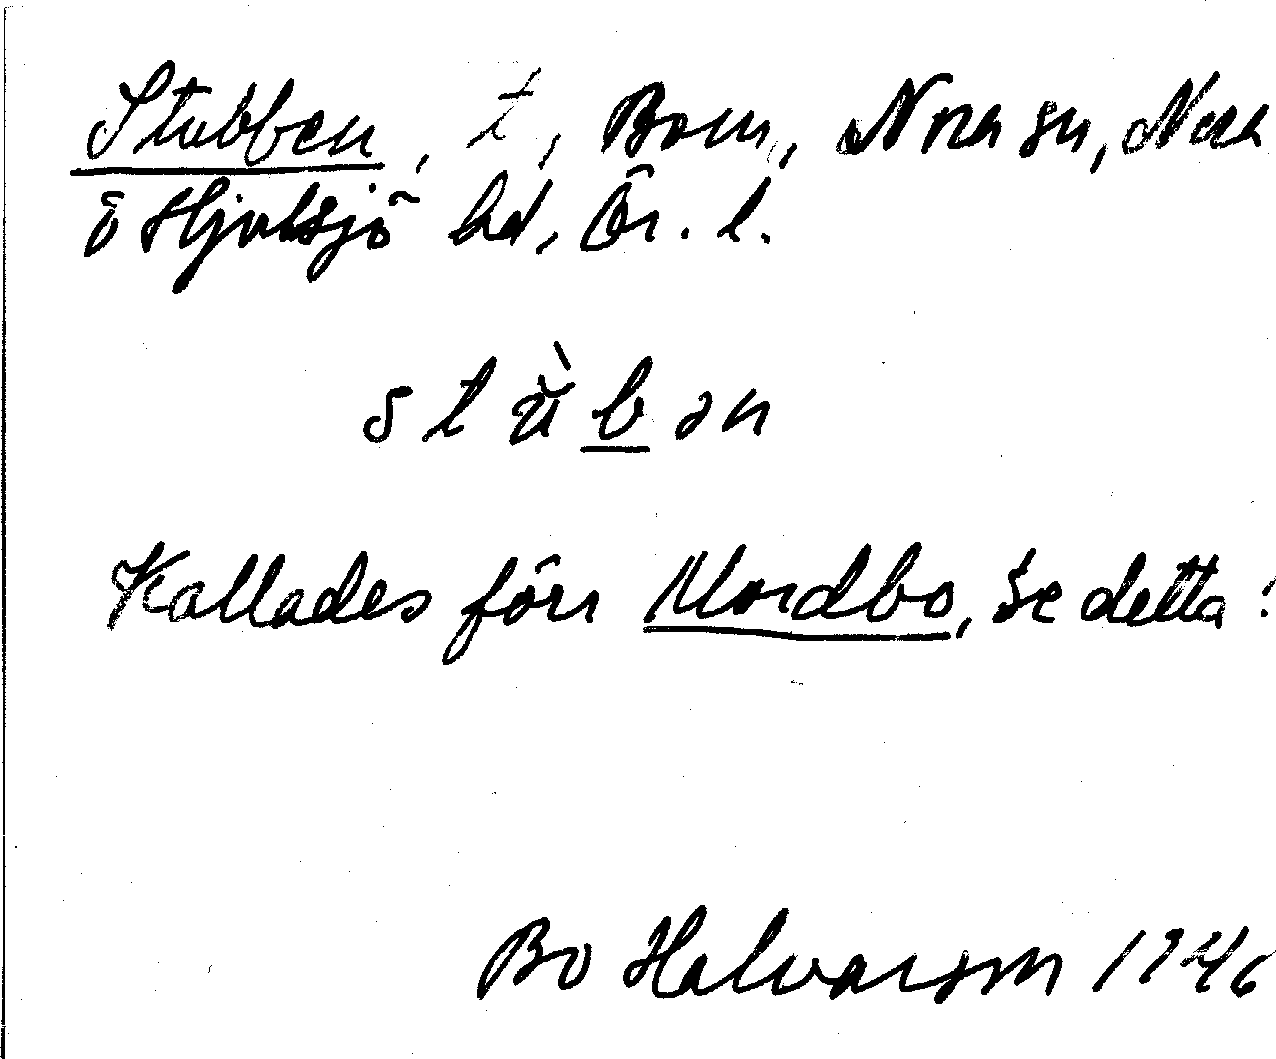 Stubben, t, Bom, Nora sn, Nora
o Hjulsjö hd, Ör. l.
stùbən
Kallades förr Nordbo, se detta!
Bo Halvarson 1946